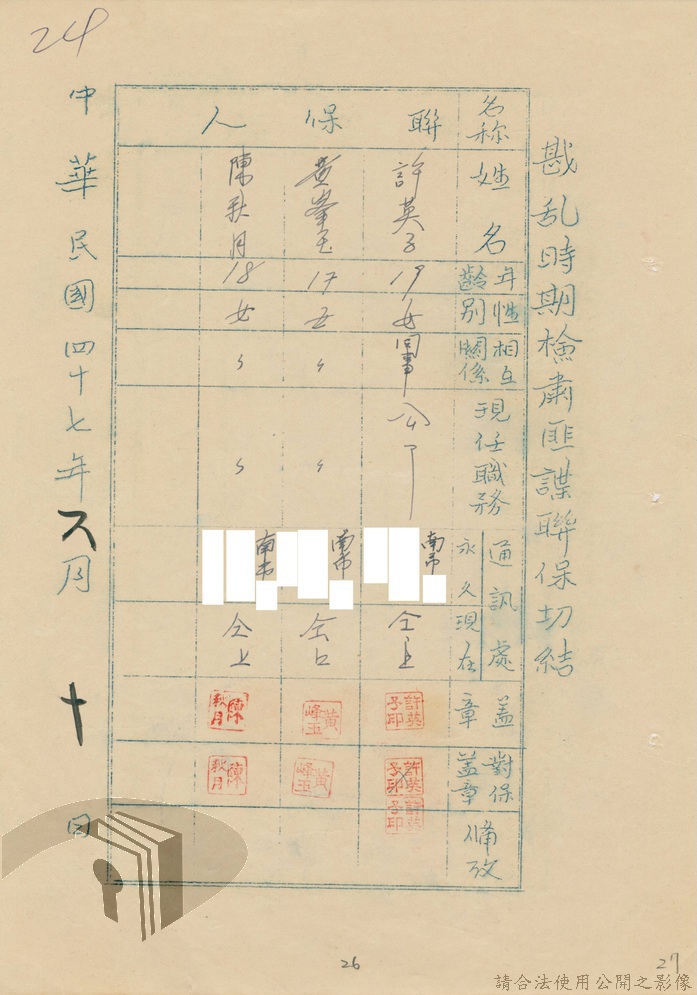 24
戡乱時期檢肅匪諜聯保切結
名称 姓名 年齡 性别 相互關係 現任職務 通訊處 永久 現在 盖章 對保盖章 備攷
聯保人
許英子 19 女 同事 南市 仝上 許英子印 許英子印
黃峯玉 17 女 〃 〃 南市 仝上 黃峰玉 黃峰玉
陳秋月 18 女 〃 〃 南市 仝上 陳秋月 陳秋月
中華民國四十七年六月十日
26
27
請合法使用公開之影像